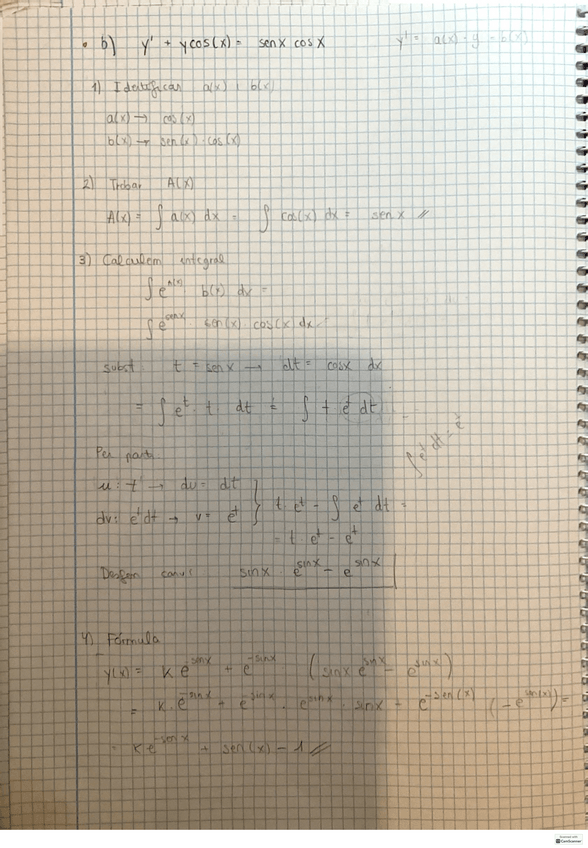 • b) y' + y cos(x) = sen x cos x
y' = a(x) · y = b(x)
1) Identificar a(x) i b(x)
a(x) → cos(x)
b(x) → sen(x) · cos(x)
2) Trobar A(x)
A(x) = ∫ a(x) dx = ∫ cos(x) dx = sen x //
3) Calculem integral
∫ e^A(x) · b(x) dx =
∫ e^senx · sen(x) · cos(x) dx =
subst. t = sen x → dt = cosx dx
= ∫ e^t · t · dt = ∫ t e^t dt =
∫ e^t dt = e^t
Per parts
u: t → du = dt
dv: e^t dt → v = e^t } t · e^t - ∫ e^t dt =
= t · e^t - e^t
Desfem canvi: sinx · e^sinx - e^sinx
4) Fórmula
y(x) = K e^-sinx + e^-sinx (sinx e^sinx - e^sinx)
= K · e^-sinx + e^-sinx · e^sinx · sinx + e^-sen(x) (-e^sin(x)) =
= K e^-sen x + sen(x) - 1 //
Scanned with
CamScanner